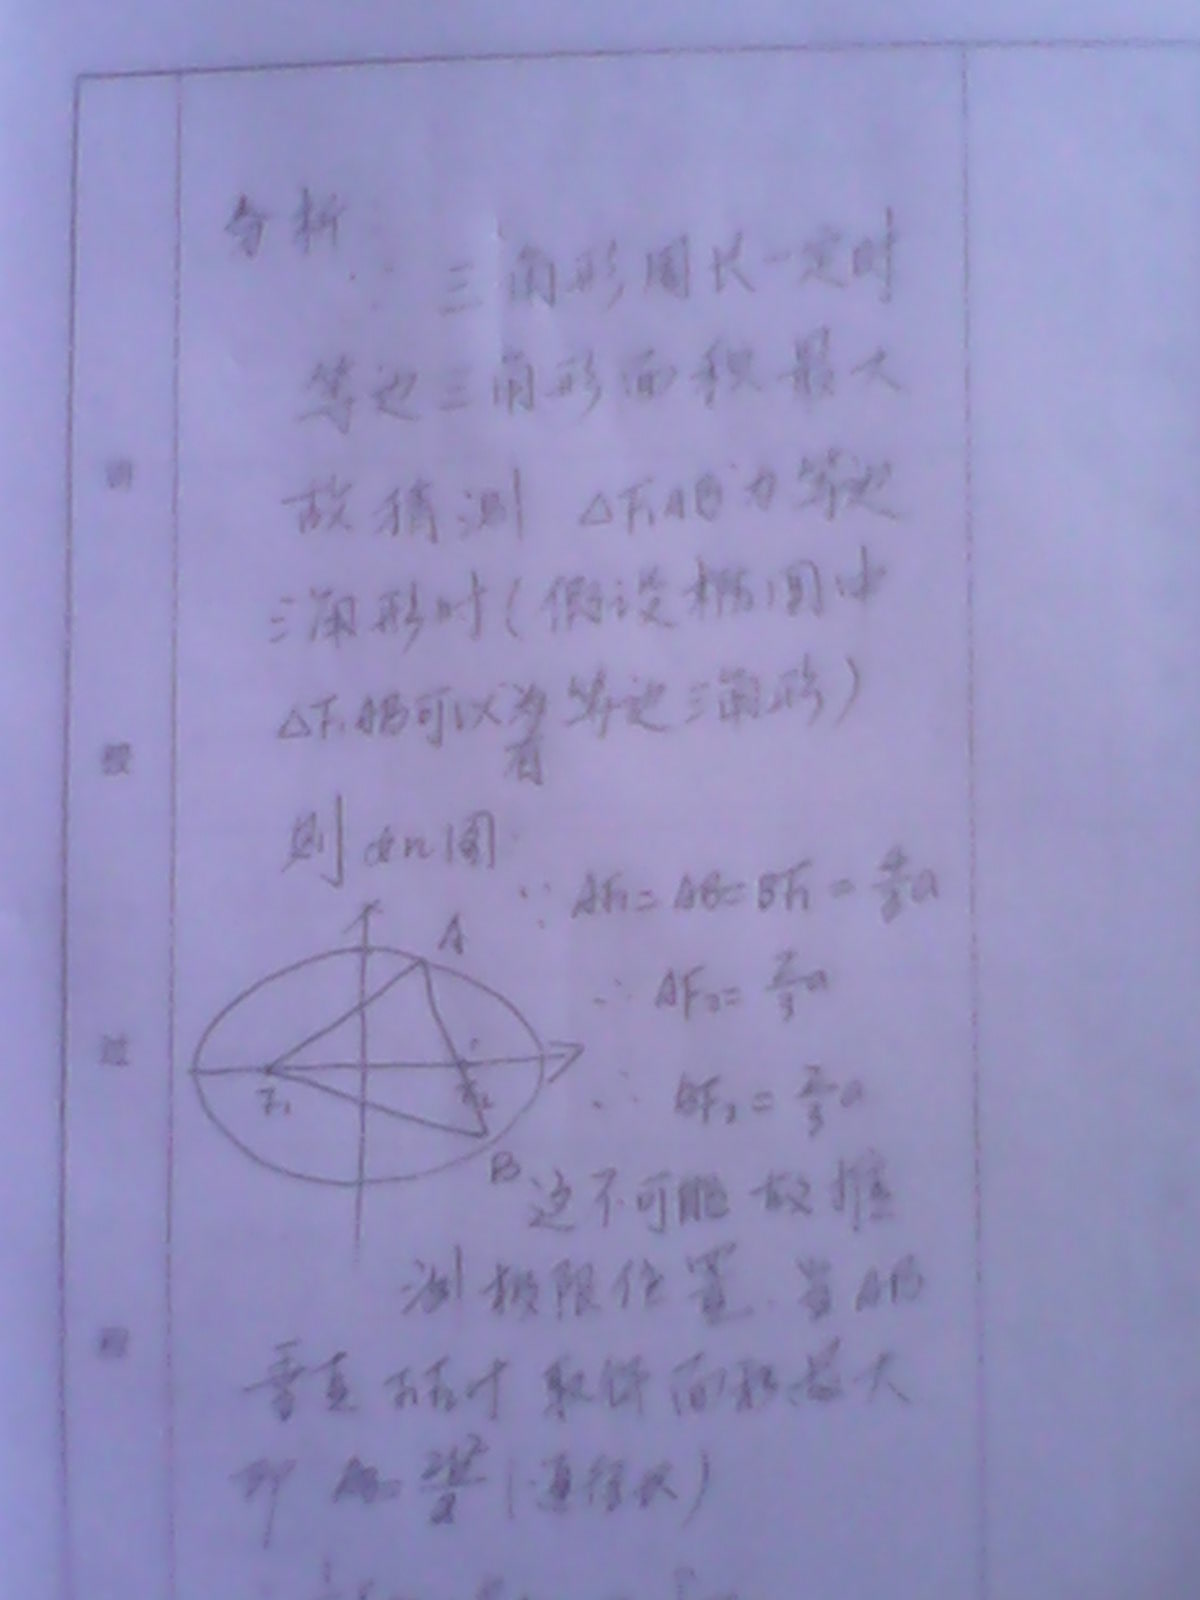 分析
三角形周长一定时
等边三角形面积最大
故猜测 △F₁AB为等边
三角形时(假设椭圆中
△F₁AB可以有等边三角形)
则如图
∵ AF₁=AB=BF₁=4/3a
A
∴ AF₂=2/3a
F₁
F₂
∴ BF₂=2/3a
B
这不可能 故推
测极限位置.当AB
垂直F₁F₂时 取得面积最大
即 AB=2b²/a(通径长)
授
过
程